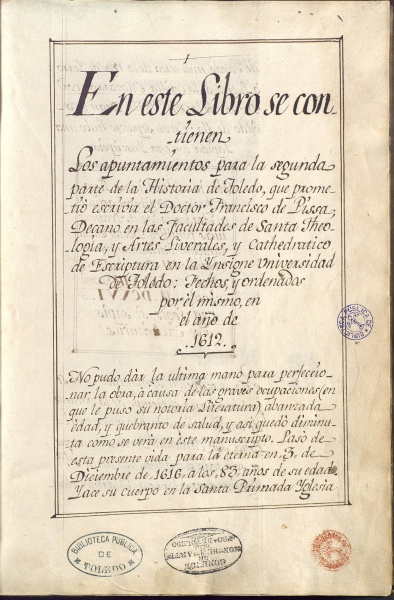 1
En este Libro se con
tienen
Los apuntamientos para la segunda
parte de la Historia de Toledo, que prome
tió escrivir el Doctor Francisco de Pissa,
Decano en las Facultades de Santa Theo
logia, y Artes Liverales, y Cathedratico
de Escriptura en la Ynsigne Universidad
de Toledo: Fechos, y ordenados
por él mismo, en
el año de
.1612.
No pudo dàr la ultima mano para perfeccio-
nar la obra, à causa de las graves ocupaciones (en
que le puso su notoria Literatura) abanzada
edad, y quebranto de salud, y asi quedó diminu
ta como se verá en este manuscripto. Pasó de
esta presente vida para la eterna en 3. de
Diciembre de 1616. à los 83. años de su edad.
Yace su cuerpo en la Santa Primada Yglesia
BIBLIOTECA PUBLICA
DE
TOLEDO